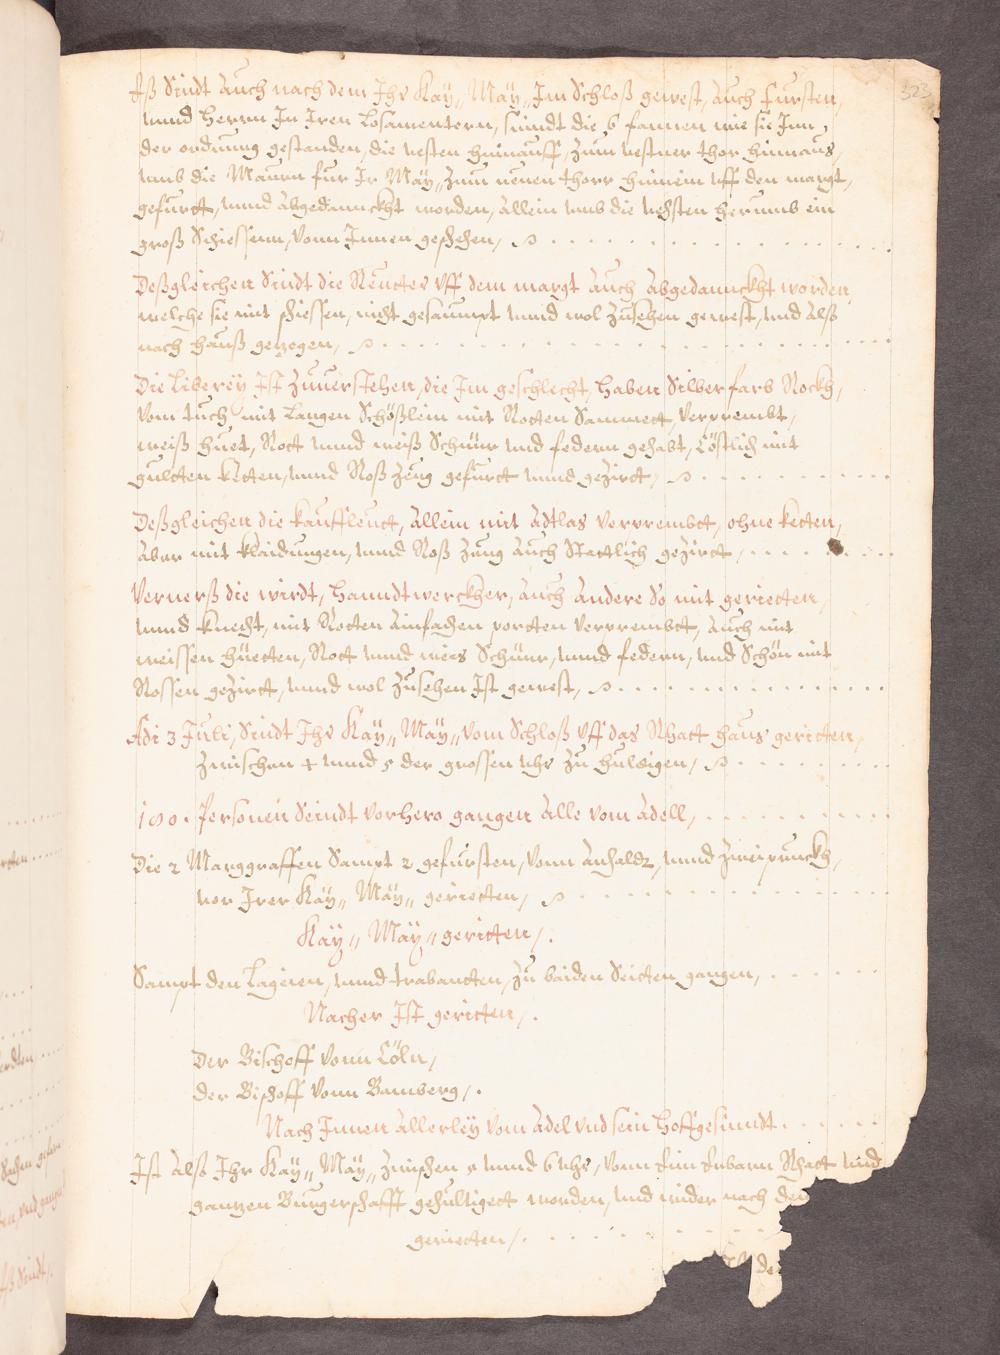 323
Eß Sindt Auch nach dem Ihr Kay„ May„ Im Schloß gewest, Auch Fursten,
Vnnd Herrn In Iren Losamentern, sindt die 6 fannen wie sie Inn
der ordnung gestanden, die vesten hinauff, Zum vestner thor hinnaus,
Vmb die Maurn fur Ir May„ Zum neuen thorr hinnein vff den margt,
gefurtt, vnnd Abgedannckht worden, Allein vmb die vehsten herumb ein
groß Schiessenn, vonn Innen geschehen,
Deßgleichen Sindt die Reutter vff dem margt Auch Abgedannckht worden,
welche sie mit schiessen, nicht gesaumpt vnnd wol Zusehen gewest, vnd Alß
nach hauß gezogen,
Die Liberey Ist Zuuerstehen, die Im geschlecht, haben Silberfarb Rockh,
vom tuch mit Langen Schößlein mit Rotten Sammett, verprembt,
weiß huet, Rott vnnd weiß Schnür vnd federn gehabt, Cöstlich mit
gultten ketten, vnnd Roß Zeug gefurtt vnnd gezirtt,
Deßgleichen die kauffleutt, Allein mit Adtlas verprembtt, ohne ketten,
Aber mit klaidungen, vnnd Roß Zeug Auch Stattlich gezirtt,
Vernerß die wirdt, Handtwerckher, Auch Andere So mit geritten,
vnnd knecht, mit Rotten Ainfachen portten verprembtt, Auch mit
weissen hüetten, Rott vnnd weis Schnur, vnnd federn, vnd Schön mit
Rossen gezirtt, vnnd wol Zusehen Ist gewest,
Adi 3 Juli, Sindt Ihr Kay„ May„ vom Schloß vff das Rhatt haus geritten,
Zwischen 4 vnnd 5 der grossen vhr Zu huldigen,
100. Personen Seindt vorhero gangen Alle vom Adell,
Die 2 Marggraffen Sampt 2 gefursten, vonn Anhaldt, vnnd Zweiprunckh,
vor Irer Kay„ May„ geritten,
Kay„ May„ geritten,.
Sampt den Lageien, vnnd trabantten, Zu beiden Seitten gangen,
Nacher Ist geritten,.
Der Bischoff vonn Cöln,
der Bischoff vonn Bamberg,.
Nach Innen Allerley vom Adel vnd sein hoffgesinndt
Ist Alß Ihr Kay„ May„ Zwischen 5 vnnd 6 vhr, vonn Eim Erbarn Rhatt vnd
gantzen Burgerschafft gehultigett worden, vnd wider nach dem
geritten,
de